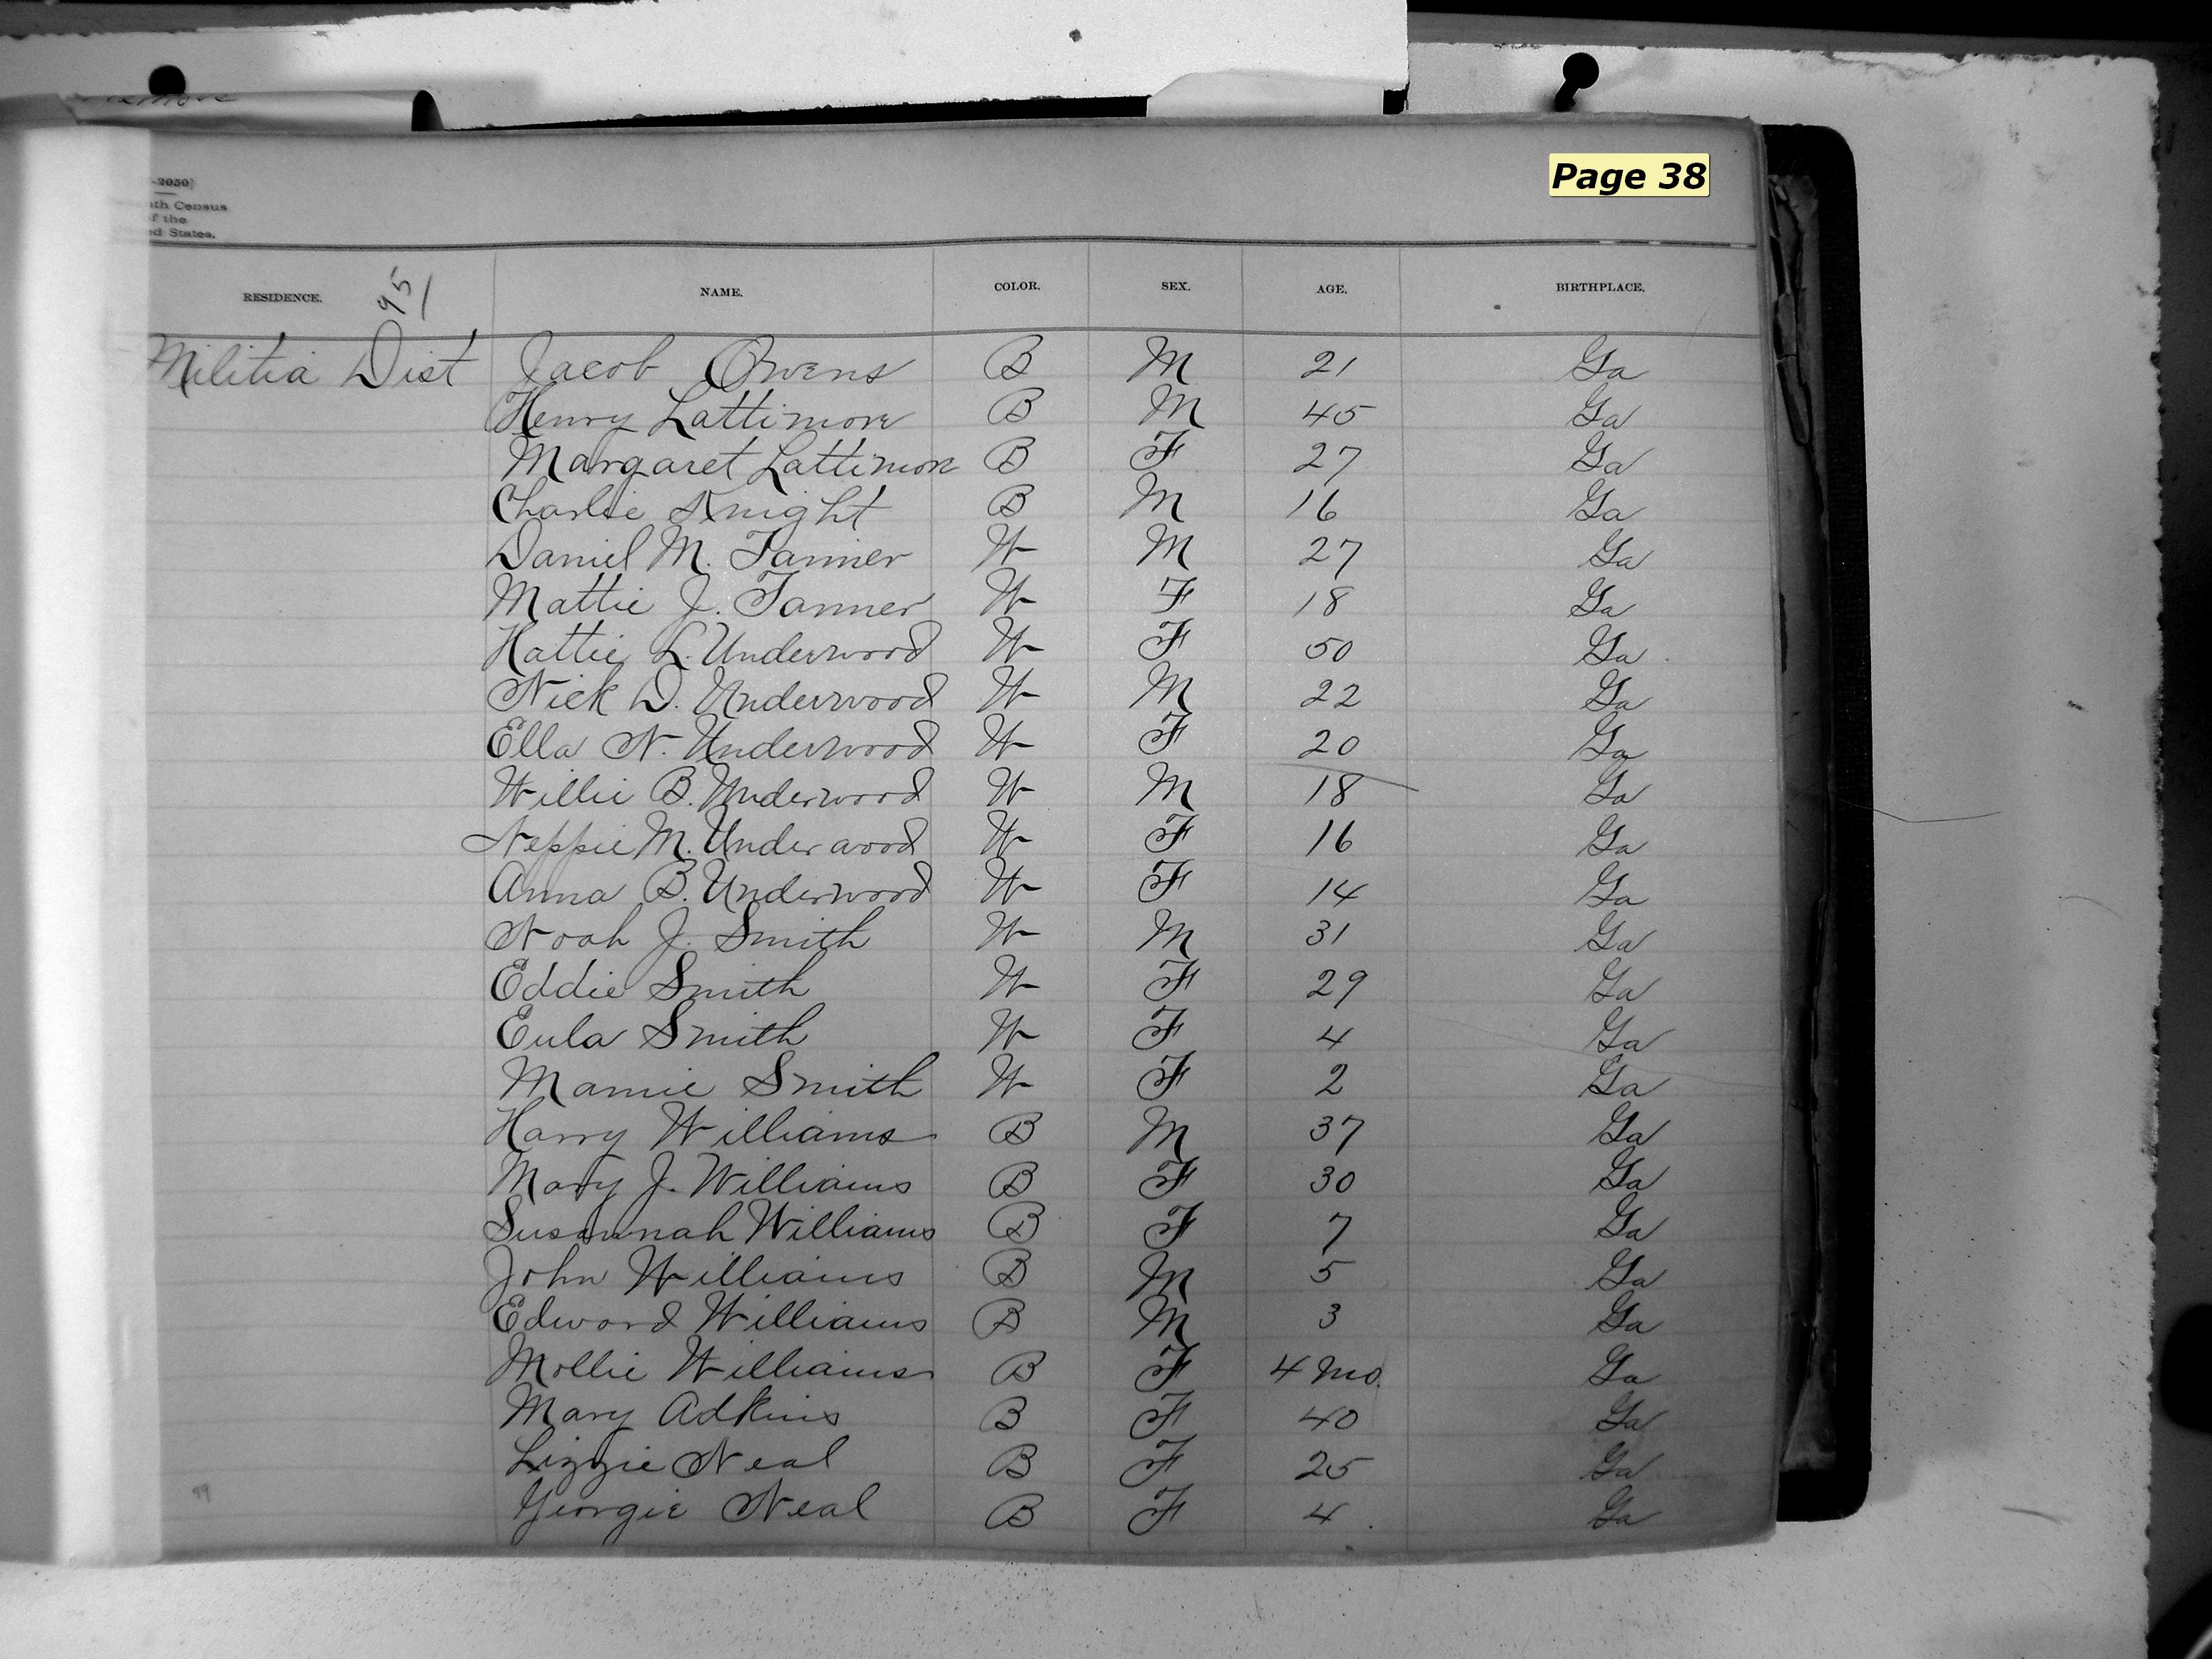 Page 38
-2050]
th Census
of the
ed States.
RESIDENCE. 951 NAME. COLOR. SEX. AGE. BIRTHPLACE.
Militia Dist Jacob Owens B M 21 Ga
Henry Lattimore B M 45 Ga
Margaret Lattimore B F 27 Ga
Charlie Knight B M 16 Ga
Daniel M. Tanner W M 27 Ga
Mattie J. Tanner W F 18 Ga
Hattie L. Underwood W F 50 Ga
Nick D. Underwood W M 22 Ga
Ella N. Underwood W F 20 Ga
Willie B. Underwood W M 18 Ga
Neppie M. Underwood W F 16 Ga
Anna B. Underwood W F 14 Ga
Noah J. Smith W M 31 Ga
Eddie Smith W F 29 Ga
Eula Smith W F 4 Ga
Mamie Smith W F 2 Ga
Harry Williams B M 37 Ga
Mary J. Williams B F 30 Ga
Susannah Williams B F 7 Ga
John Williams B M 5 Ga
Edward Williams B M 3 Ga
Mollie Williams B F 4 mo. Ga
Mary Adkins B F 40 Ga
Lizzie Neal B F 25 Ga
Georgie Neal B F 4 Ga